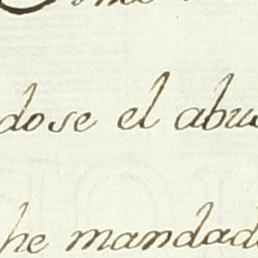 dose el abu
he mandad